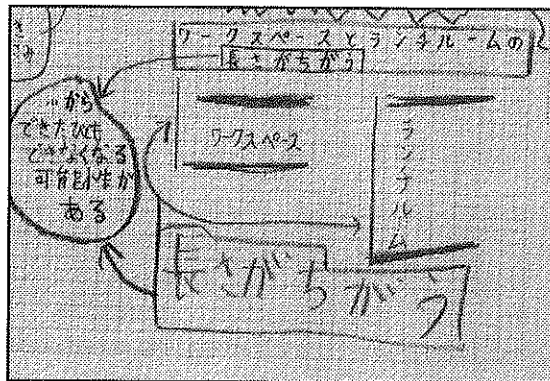 ワークスペースとランチルームの
長さがちがう
…から
できたひも
できなくなる
可能性が
ある
ワークスペース
ランチルーム
長さがちがう